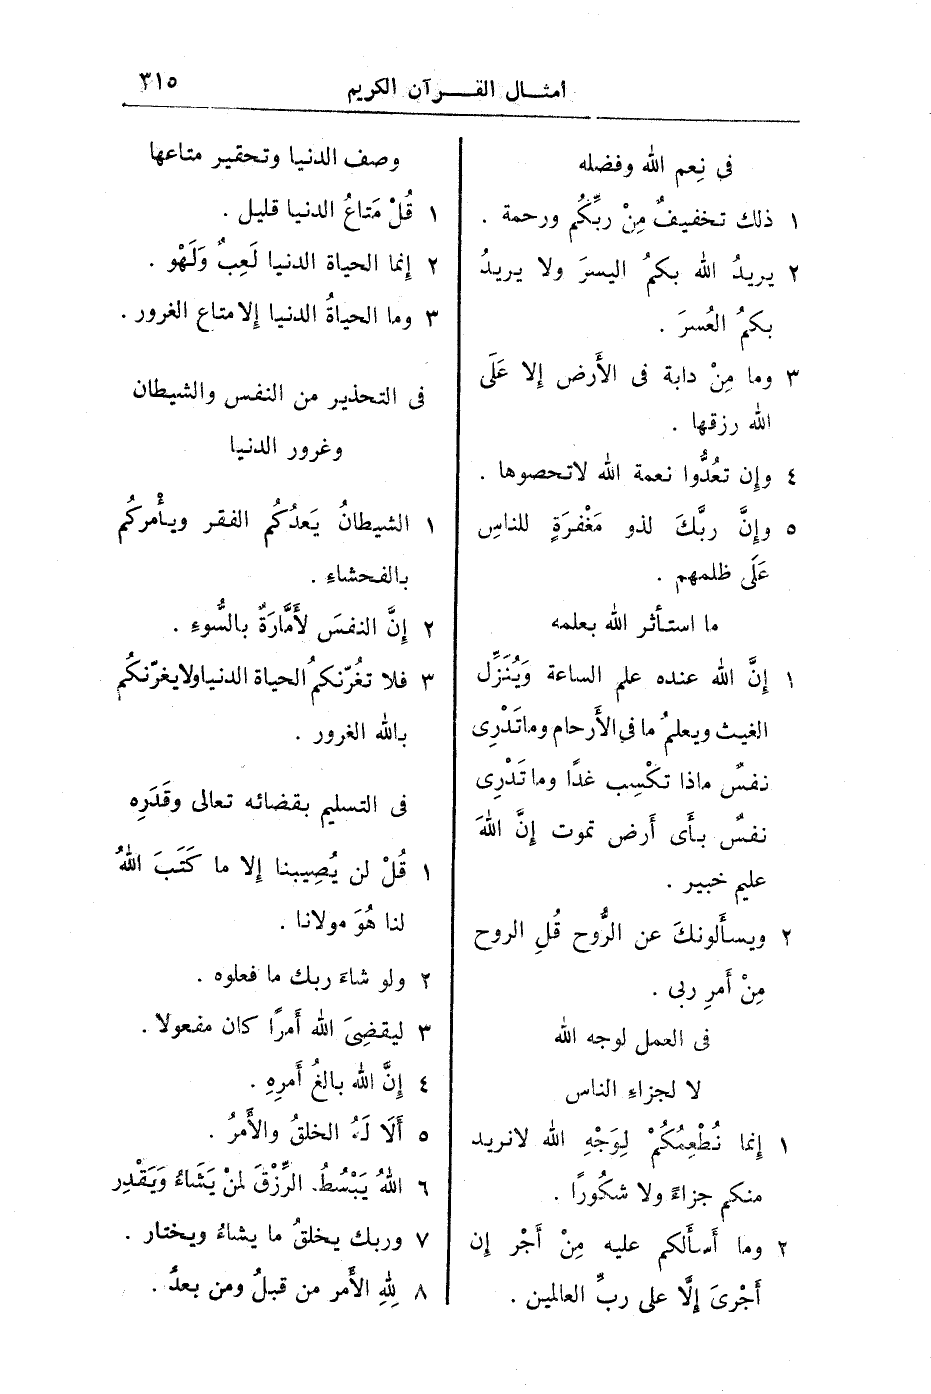 امثـال القـــرآن الكريم ٣١٥
فى نِعم الله وفضله
١ ذلك تخفيفٌ مِنْ ربِّكُم ورحمة .
٢ يريدُ الله بكمُ اليسرَ ولا يريدُ
بكمُ العُسرَ .
٣ وما مِنْ دابة فى الأَرض إلا عَلَى
الله رزقها .
٤ وإِن تعُدُّوا نعمة الله لاتحصوها .
٥ وإِنَّ ربَّكَ لذو مَغْفرَةٍ للناسِ
عَلَى ظلمهم .
ما استأثر الله بعلمه
١ إِنَّ الله عنده علم الساعة وَيُنَزِّل
الغيث ويعلمُ ما فى الأَرحام وماتَدْرِى
نفسٌ ماذا تكْسِب غدًا وما تَدْرِى
نفسٌ بأَى أَرض تموت إِنَّ اللهَ
عليم خبير .
٢ ويسأَلونكَ عن الرُّوح قُلِ الروح
مِنْ أَمرِ ربى .
فى العمل لوجه الله
لا لجزاءِ الناس
١ إِنما نُطْعِمُكُمْ لِوَجْهِ الله لانريد
منكم جزاءً ولا شكُورًا .
٢ وما أَسأَلكم عليه مِنْ أَجْر إِن
أَجْرىَ إِلَّا على ربِّ العالمين .
وصف الدنيا وتحقير متاعها
١ قُلْ مَتاعُ الدنيا قليل .
٢ إِنما الحياة الدنيا لَعِبٌ وَلَهْو .
٣ وما الحياةُ الدنيا إِلامتاع الغرور .
فى التحذير من النفس والشيطان
وغرور الدنيا
١ الشيطانُ يَعدُكُم الفقر ويأْمركُم
بالفحشاءِ .
٢ إِنَّ النفسَ لأَمَّارَةٌ بالسُّوءِ .
٣ فلا تغُرّنكمُ الحياة الدنياولايغرّنكُم
بالله الغرور .
فى التسليم بقضائه تعالى وقَدَرِه
١ قُلْ لن يُصِيبنا إِلا ما كَتَبَ اللهُ
لنا هُوَ مولانا .
٢ ولو شاءَ ربك ما فعلوه .
٣ ليقضىَ الله أَمرًا كان مفعولا .
٤ إِنَّ الله بالغُ أَمرِهِ .
٥ أَلَا لَهُ الخلقُ والأَمرُ .
٦ اللهُ يَبْسُطُ الرِّزْقَ لمنْ يَشَاءُ وَيَقْدِر
٧ وربك يخلقُ ما يشاءُ ويختار .
٨ لِلهِ الأَمر من قبلُ ومن بعدُ .